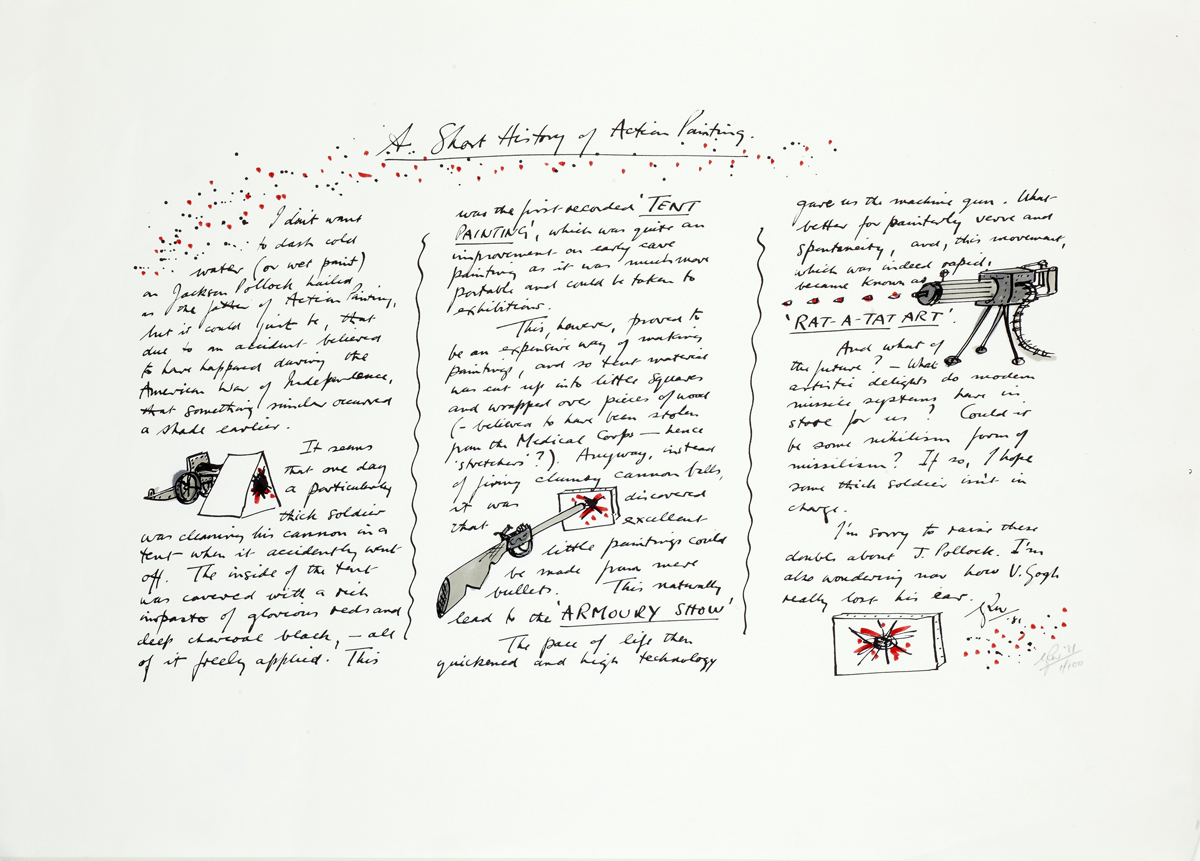 A Short History of Action Painting.
I don't want
to dash cold
water (or wet paint)
on Jackson Pollock hailed
as the father of Action Painting,
but it could just be, that
due to an accident believed
to have happened during the
American War of Independence,
that something similar occurred
a shade earlier.
It seems
that one day
a particularly
thick soldier
was cleaning his cannon in a
tent when it accidently went
off. The inside of the tent
was covered with a rich
impasto of glorious reds and
deep charcoal black, – all
of it freely applied. This
was the first recorded 'TENT
PAINTING', which was quite an
improvement on early cave
painting as it was much more
portable and could be taken to
exhibitions.
This, however, proved to
be an expensive way of making
paintings, and so tent material
was cut up into little squares
and wrapped over pieces of wood
(– believed to have been stolen
from the Medical Corps – hence
'stretchers'?). Anyway, instead
of firing clumsy cannon balls,
it was discovered
that excellent
little paintings could
be made from mere
bullets. This naturally
lead to the 'ARMOURY SHOW'
The pace of life then
quickened and high technology
gave us the machine gun. What
better for painterly verve and
spontaneity, and, this movement,
which was indeed rapid,
became known as
'RAT-A-TAT ART'.
And what of
the future? – What
artistic delights do modern
missile systems have in
store for us? Could it
be some nihilism form of
missilism? If so, I hope
some thick soldier isn't in
charge.
I'm sorry to raise these
doubts about J. Pollock. I'm
also wondering now how V. Gogh
really lost his ear.
'81
'81
1/100